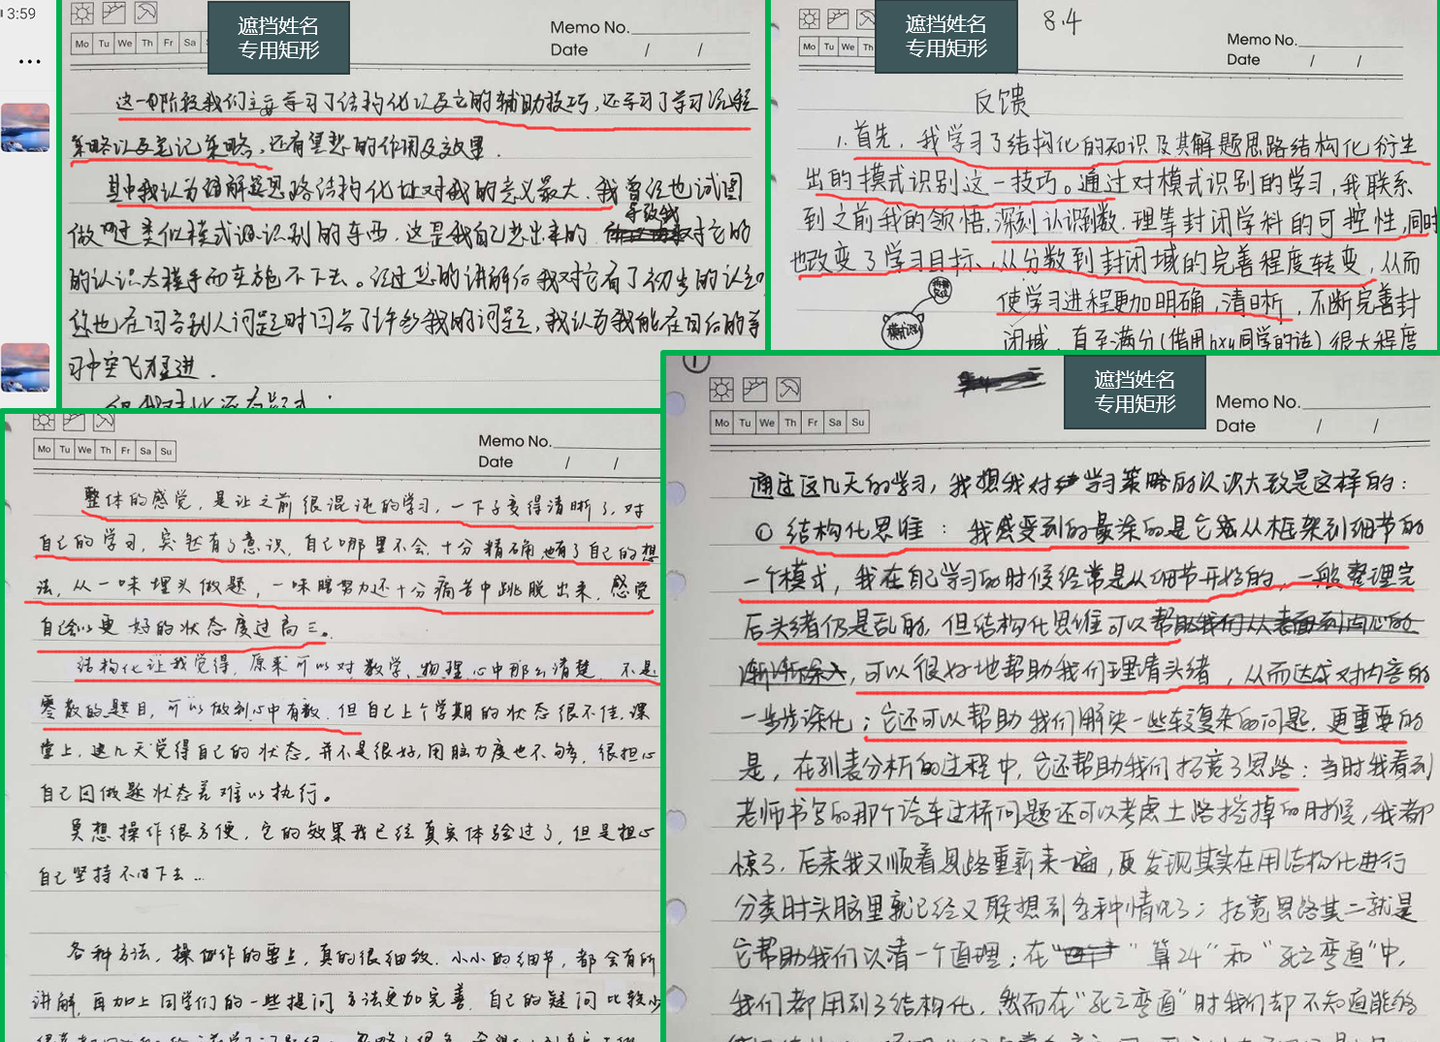 3:59
Mo Tu We Th Fr Sa S
遮挡姓名
专用矩形
Memo No.
Date / /
这一阶段我们主要学习了结构化以及它的辅助技巧,还学习了学习流程
策略以及笔记策略,还有冥想的作用及效果.
其中我认为理解题思路结构化让对我的意义最大.我曾经也试图
导致我
做过类似模式识别的东西,这是我自己想出来的 对它的
的认识太程乎而实施不下去。经过您的讲解后我对它有了初步的认知
您也在回答别人问题时回答了许多我的问题,我认为我能在日后的学
习中突飞猛进.
遮挡姓名
专用矩形
8.4
Mo Tu We Th
Memo No.
Date / /
反馈
1.首先,我学习了结构化的知识及其解题思路结构化衍生
出的模式识别这一技巧。通过对模式识别的学习,我联系
到之前我的领悟,深刻认识到数.理等封闭学科的可控性,同时
也改变了学习目标、从分数到封闭域的完善程度转变,从而
使学习进程更加明确,清晰,不断完善封
模式识别
闭域,直至满分(借用hxy同学的话)很大程度
Mo Tu We Th Fr Sa Su
Memo No.
Date / /
整体的感觉,是让之前很混沌的学习,一下子变得清晰了,对
自己的学习,突然有了意识,自己哪里不会,十分精确,也有了自己的想
法,从一味埋头做题,一味瞎努力还十分痛苦中跳脱出来,感觉
自己会以更好的状态度过高三。
结构化让我觉得,原来可以对数学、物理心中那么清楚,不是
零散的题目,可以做到心中有数,但自己上个学期的状态很不佳,课
堂上,这几天觉得自己的状态,并不是很好,用脑力度也不够,很担心
自己因做题状态差难以执行。
冥想操作很方便,它的效果我已经真实体验过了,但是担心
自己坚持不下去...
各种方法,操作的要点,真的很细致,小小的细节,都会有所
讲解,再加上同学们的一些提问,方法更加完善,自己的疑问比较少
①
遮挡姓名
专用矩形
Mo Tu We Th Fr Sa Su
Memo No.
Date / /
通过这几天的学习,我想我对学习策略的认识大致是这样的:
① 结构化思维:我感受到的最深的是它成从框架到细节的
一个模式,我在自己学习的时候经常是从细节开始的,一般整理完
后头绪仍是乱的,但结构化思维可以帮助我们从表面到内心的
渐渐深入,可以很好地帮助我们理清头绪,从而达成对内容的
一步步深化;它还可以帮助我们解决一些较复杂的问题,更重要的
是,在列表分析的过程中,它还帮助我们拓宽了思路:当时我看到
老师书写的那个汽车过桥问题还可以考虑土路挖掉的时候,我都
惊了,后来我又顺着思路重新来一遍,更发现其实在用结构化进行
分类时头脑里就已经又联想到各种情况了;拓宽思路其二就是
它帮助我们认清一个道理:在“算24”和“死亡弯道”中,
我们都用到了结构化,然而在“死亡弯道”时我们却不知道能够